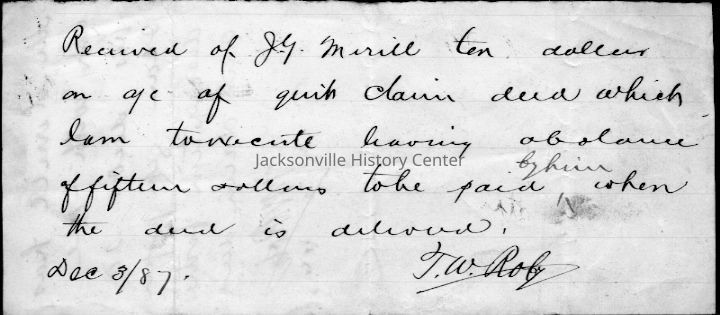 Received of J.G. Merill ten dollars
on a/c of quit claim deed which
I am to execute leaving a balance
Jacksonville History Center
by him
of fifteen dollars to be paid when
the deed is delivered.
Dec 3/87.
T.W. Roby